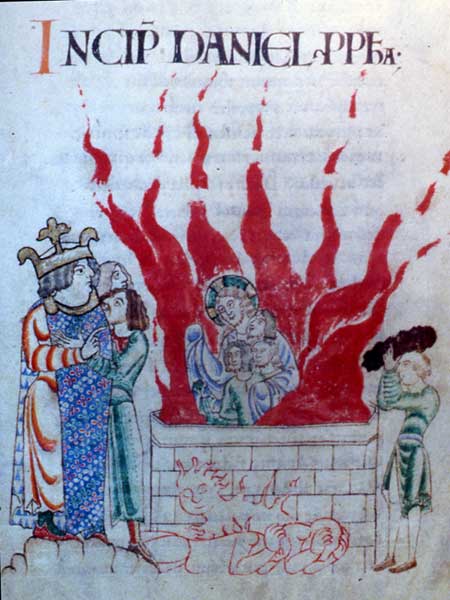 INCIP̄ DANIEL · PPħA ·